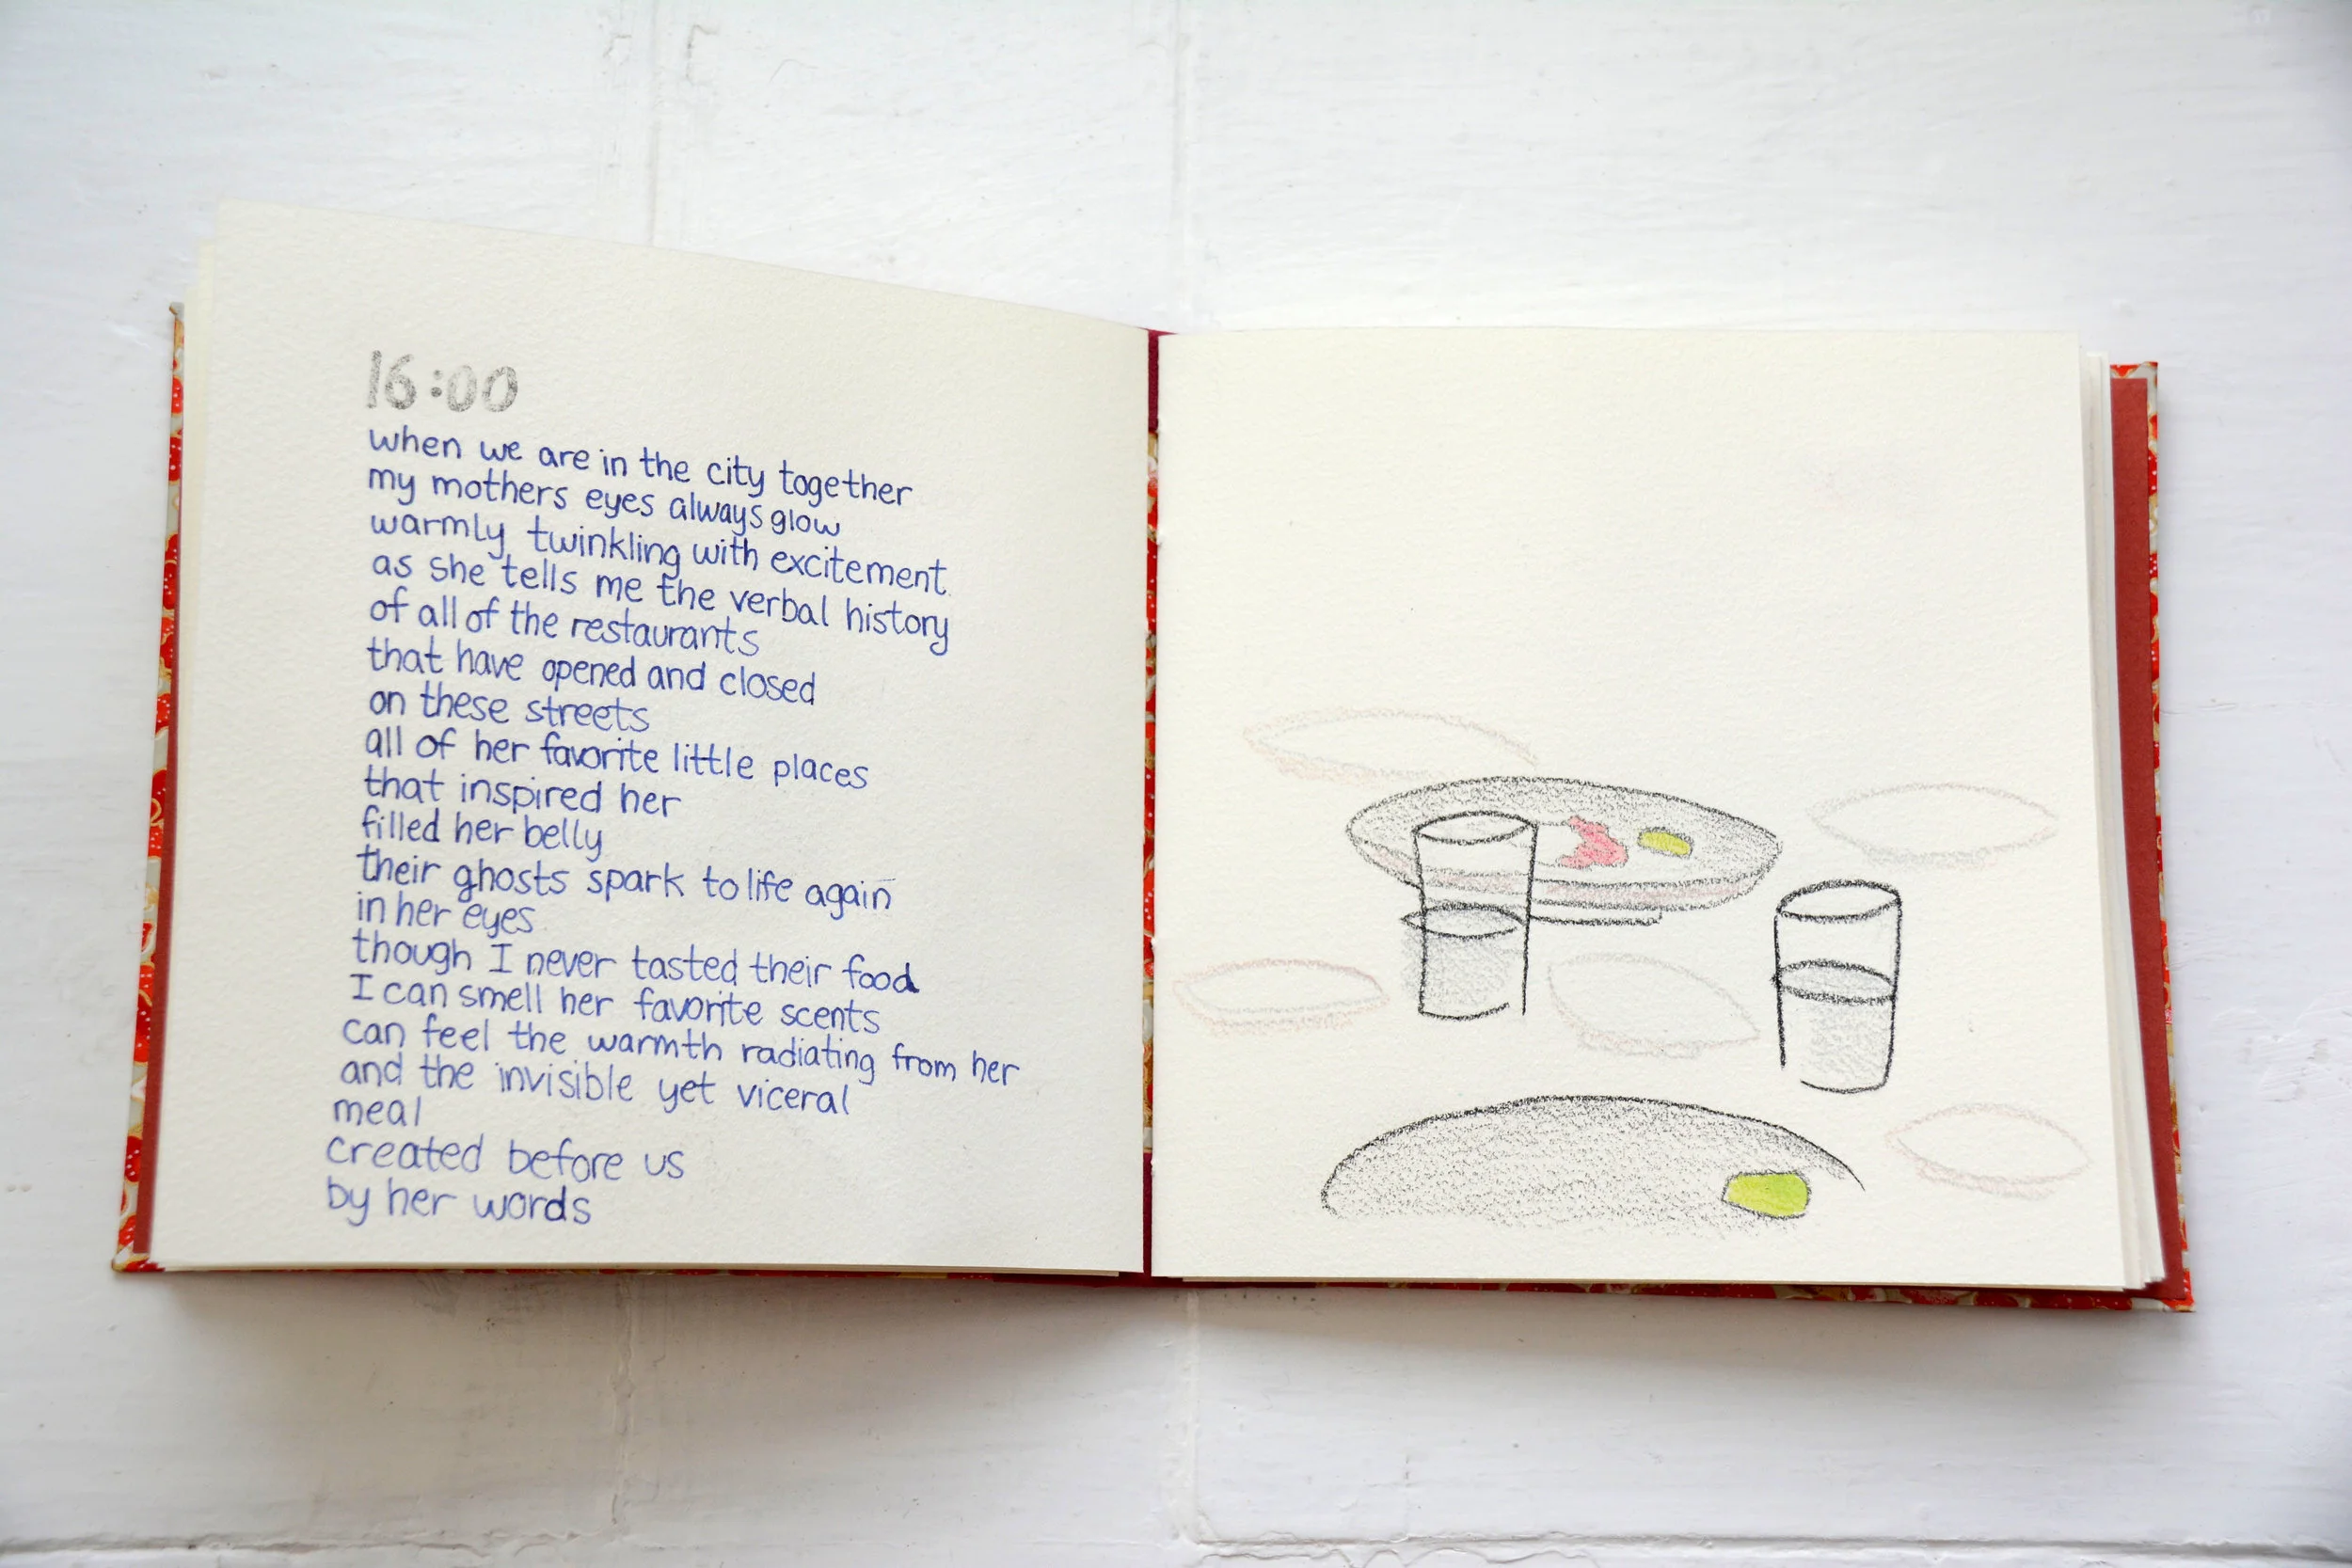 16:00
when we are in the city together
my mothers eyes always glow
warmly twinkling with excitement
as she tells me the verbal history
of all of the restaurants
that have opened and closed
on these streets
all of her favorite little places
that inspired her
filled her belly
their ghosts spark to life again
in her eyes
though I never tasted their food
I can smell her favorite scents
can feel the warmth radiating from her
and the invisible yet viceral
meal
created before us
by her words